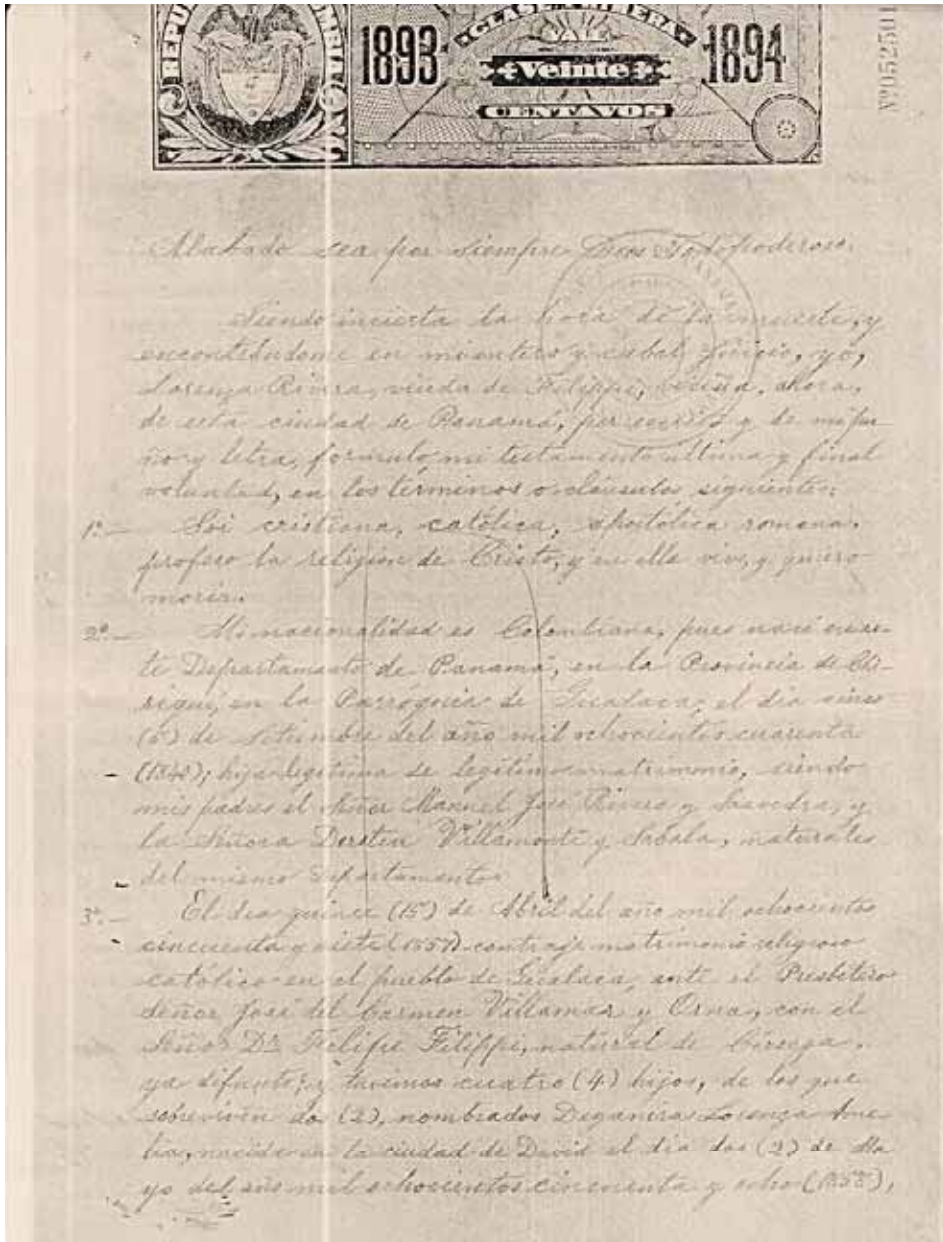 1893
CLASE PRIMERA
VALE
Veinte
CENTAVOS
1894
Nº 052501
Alabado sea por siempre Dios Todopoderoso.
Siendo incierta la hora de la muerte, y
encontrándome en mi entero y cabal juicio, yo,
Lorenza Rivera, viuda de Filippi, vecina, ahora,
de esta ciudad de Panamá, por escrito y de mi pu-
ño y letra, formulo mi testamento última y final
voluntad, en los términos o cláusulas siguientes:
1º.— Soi cristiana, católica, apostólica romana,
profeso la religion de Cristo, y en ella vivo, y quiero
morir.
2º.— Mi nacionalidad es Colombiana, pues nací en es-
te Departamento de Panamá, en la Provincia de Chi-
riquí, en la Parróquia de Gualaca, el día cinco
(5) de Setiembre del año mil ochocientos cuarenta
(1840); hija legítima de legítimo matrimonio, siendo
mis padres el Señor Manuel José Rivera y Saavedra, y
la Señora Villamonte y naturales
del mismo Departamento.
3º.— El dia quince (15) de Abril del año mil ochocientos
cincuenta y siete (1857) contraje matrimonio religioso
católico en el pueblo de Gualaca, ante el Presbítero
Señor José del Carmen Villamar y con el
Señor Dr. Felipe Filippi, natural de
ya difunto; y tuvimos cuatro (4) hijos, de los que
sobreviven dos (2), nombrados Deyanira Lorenza Ame-
lia, nacida en la ciudad de David el día dos (2) de Ma
yo del año mil ochocientos cincuenta y ocho (1858),